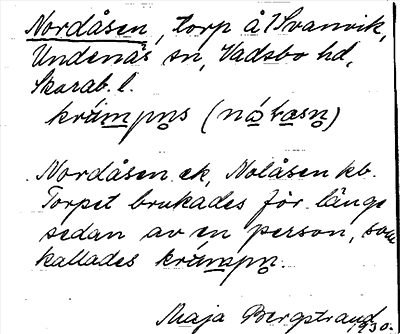 Nordåsen, torp å Svanvik,
Undenäs sn, Vadsbo hd,
Skarab. l.
krämpns (nåtæsn)
Nordåsen ek, Nolåsen kb.
Torpet brukades för länge
sedan av en person, som
kallades krämpn.
Maja Bergstrand 1930.